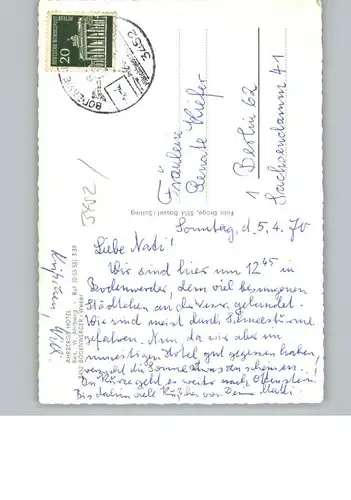 DEUTSCHE BUNDESPOST BERLIN
20
3452
BODENWERDER
Fräulein
Renate Kiefer
1 Berlin 62
Sachsendamm 41
Foto Droge, 3354 Dassel / Solling
3452 /
AHRBERGS HOTEL
Bes. W. Ahrberg
3452 BODENWERDER / Weser
Ruf (0 55 33) 3 39
Sonntag, d. 5.4.70
Liebe Nati!
Wir sind hier um 12 45 in
Bodenwerder, dem viel besungenen
Städtchen an der Weser, gelandet.
Wir sind meist durch Schneestürme
gefahren. Nun da wir aber im
Hotel gut gegessen haben,
versucht die Sonne etwas zu scheinen!
In Kürze geht es weiter nach
Bis dahin viele Küßchen von Deiner Mutti